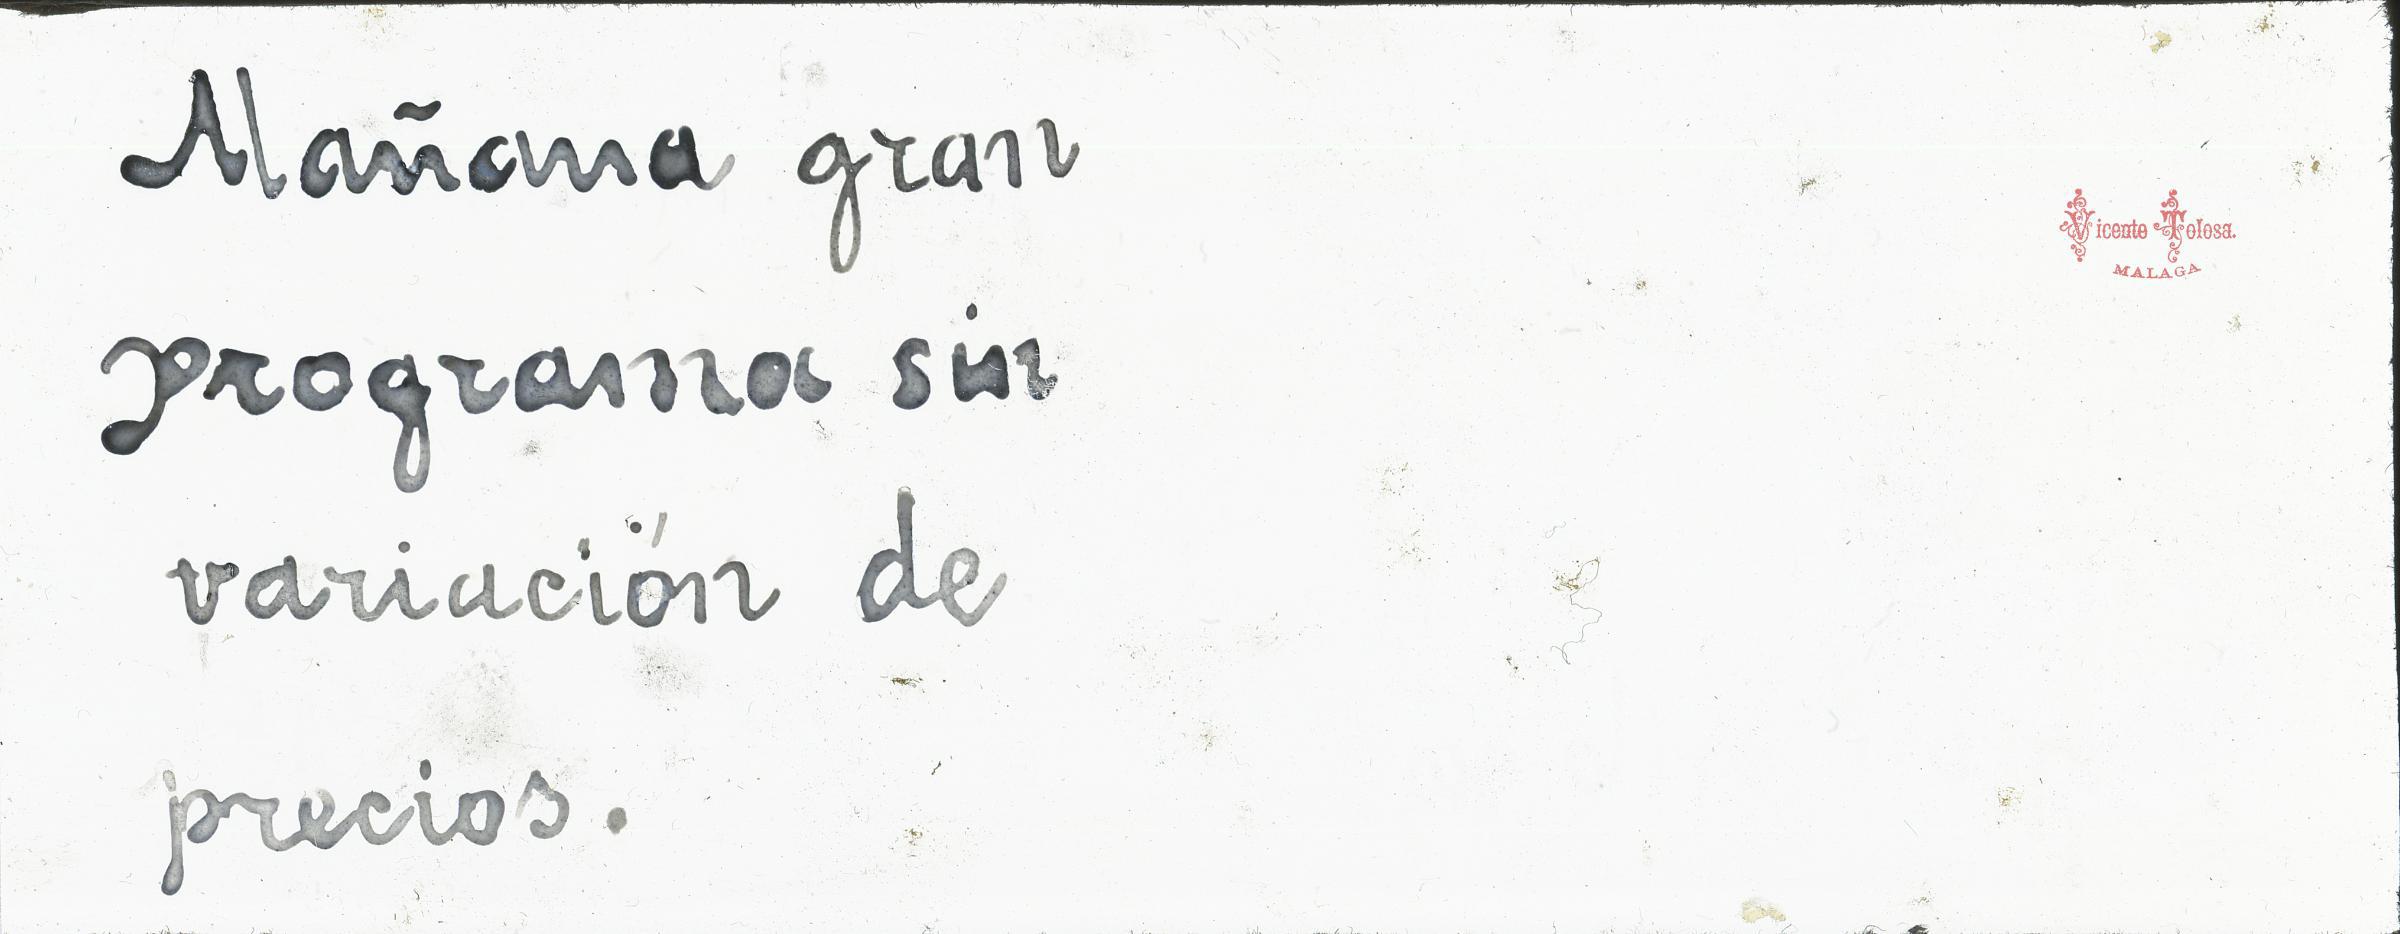 Mañana gran
programa sin
variación de
precios.
Vicente Tolosa.
MALAGA